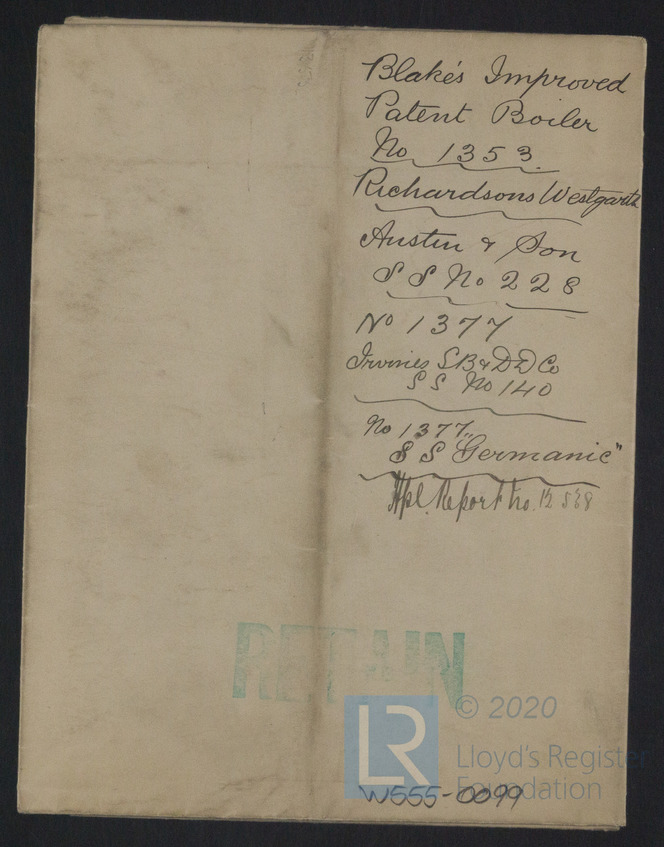 Blake's Improved
Patent Boiler
No 1353.
Richardsons Westgarth
Austin & Son
S S No 228
No 1377
Irvines S.B & D D Co
S S No 140
No 1377.
S S Germanic"
Hpl. Report No. 12
RETAIN
LR
© 2020
Lloyd's Register
Foundation
W555-0099